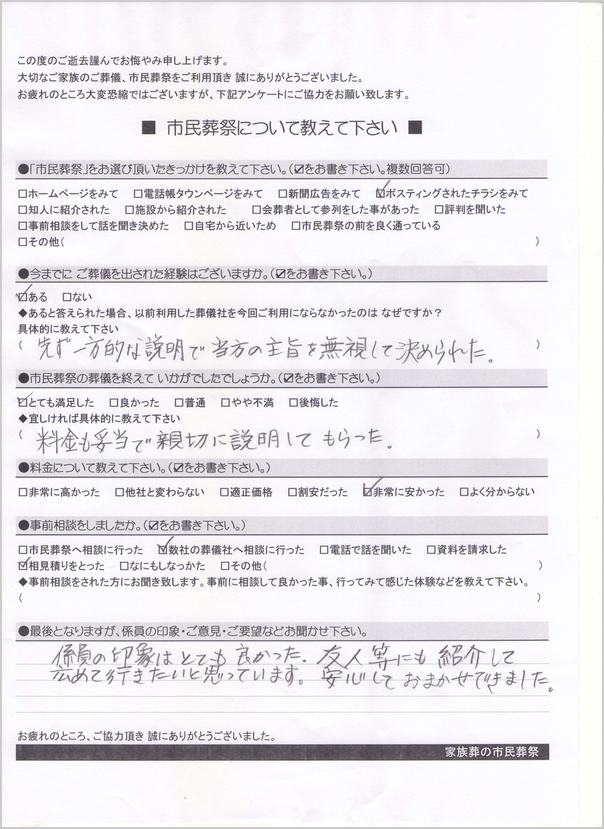 この度のご逝去謹んでお悔やみ申し上げます。
大切なご家族のご葬儀、市民葬祭をご利用頂き 誠にありがとうございました。
お疲れのところ大変恐縮ではございますが、下記アンケートにご協力をお願い致します。
■ 市民葬祭について教えて下さい ■
●「市民葬祭」をお選び頂いたきっかけを教えて下さい。（☑をお書き下さい。複数回答可）
□ホームページをみて □電話帳タウンページをみて □新聞広告をみて ☑ポスティングされたチラシをみて
□知人に紹介された □施設から紹介された □会葬者として参列をした事があった □評判を聞いた
□事前相談をして話を聞き決めた □自宅から近いため □市民葬祭の前を良く通っている
□その他（ ）
●今までに ご葬儀を出された経験はございますか。（☑をお書き下さい。）
☑ある □ない
◆あると答えられた場合、以前利用した葬儀社を今回ご利用にならなかったのは なぜですか？
具体的に教えて下さい
（ 先ず一方的な説明で当方の主旨を無視して決められた。 ）
●市民葬祭の葬儀を終えて いかがでしたでしょうか。（☑をお書き下さい。）
☑とても満足した □良かった □普通 □やや不満 □後悔した
◆宜しければ具体的に教えて下さい
（ 料金も妥当で親切に説明して もらった。 ）
●料金について教えて下さい。（☑をお書き下さい。）
□非常に高かった □他社と変わらない □適正価格 □割安だった ☑非常に安かった □よく分からない
●事前相談をしましたか。（☑をお書き下さい。）
□市民葬祭へ相談に行った ☑数社の葬儀社へ相談に行った □電話で話を聞いた □資料を請求した
☑相見積りをとった □なにもしなかった □その他（ ）
◆事前相談をされた方にお聞き致します。事前に相談して良かった事、行ってみて感じた体験などを教えて下さい。
（ ）
●最後となりますが、係員の印象・ご意見・ご要望などお聞かせ下さい。
係員の印象はとても良かった。友人等にも紹介して
広めて行きたいと思っています。安心しておまかせできました。
お疲れのところ、ご協力頂き 誠にありがとうございました。
家族葬の市民葬祭